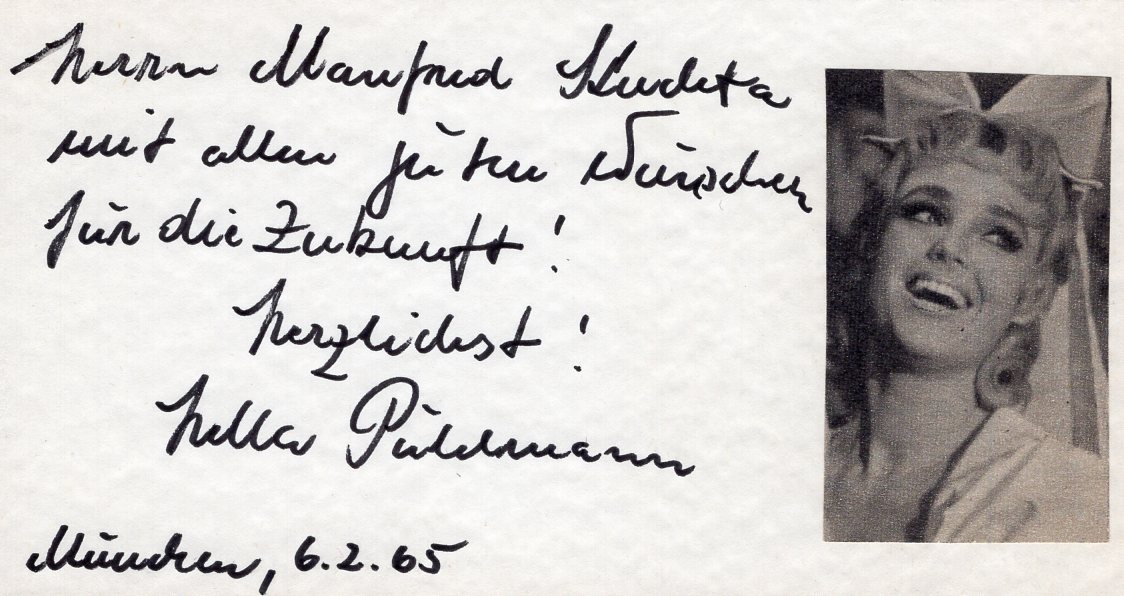 Herrn Manfred
mit allen guten Wünschen
für die Zukunft!
Herzlichst!
Hella Puhlmann
München, 6.2.65